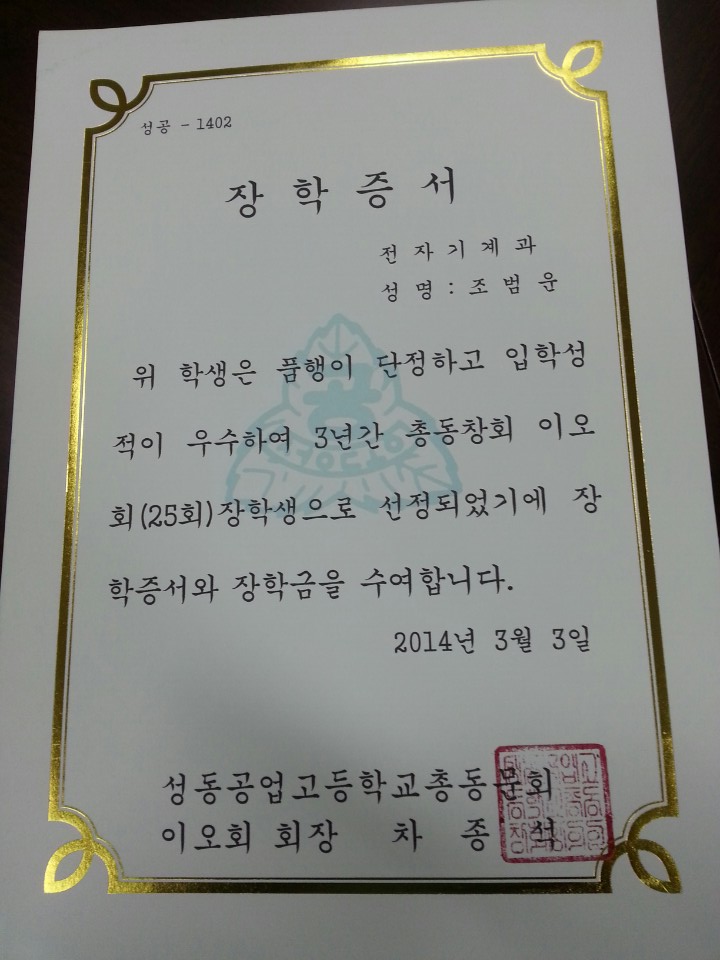 성공 - 1402
장 학 증 서
전 자 기 계 과
성 명 : 조 범 운
위 학생은 품행이 단정하고 입학성
적이 우수하여 3년간 총동창회 이오
회(25회)장학생으로 선정되었기에 장
학증서와 장학금을 수여합니다.
2014년 3월 3일
성동공업고등학교총동문회
이오회 회장 차 종 석